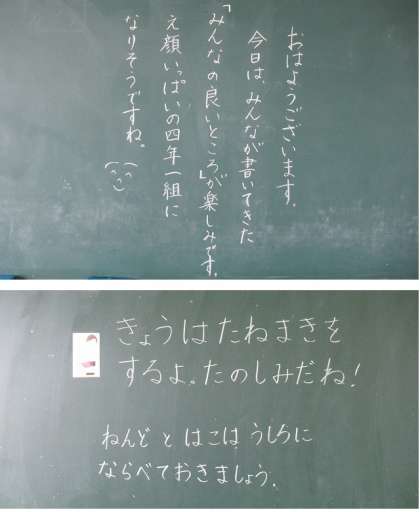 おはようございます。
今日は、みんなが書いてきた
「みんなの良いところ」が楽しみです。
え顔いっぱいの四年一組に
なりそうですね。
きょうはたねまきを
するよ。たのしみだね!
ねんど と はこは うしろに
ならべておきましょう。